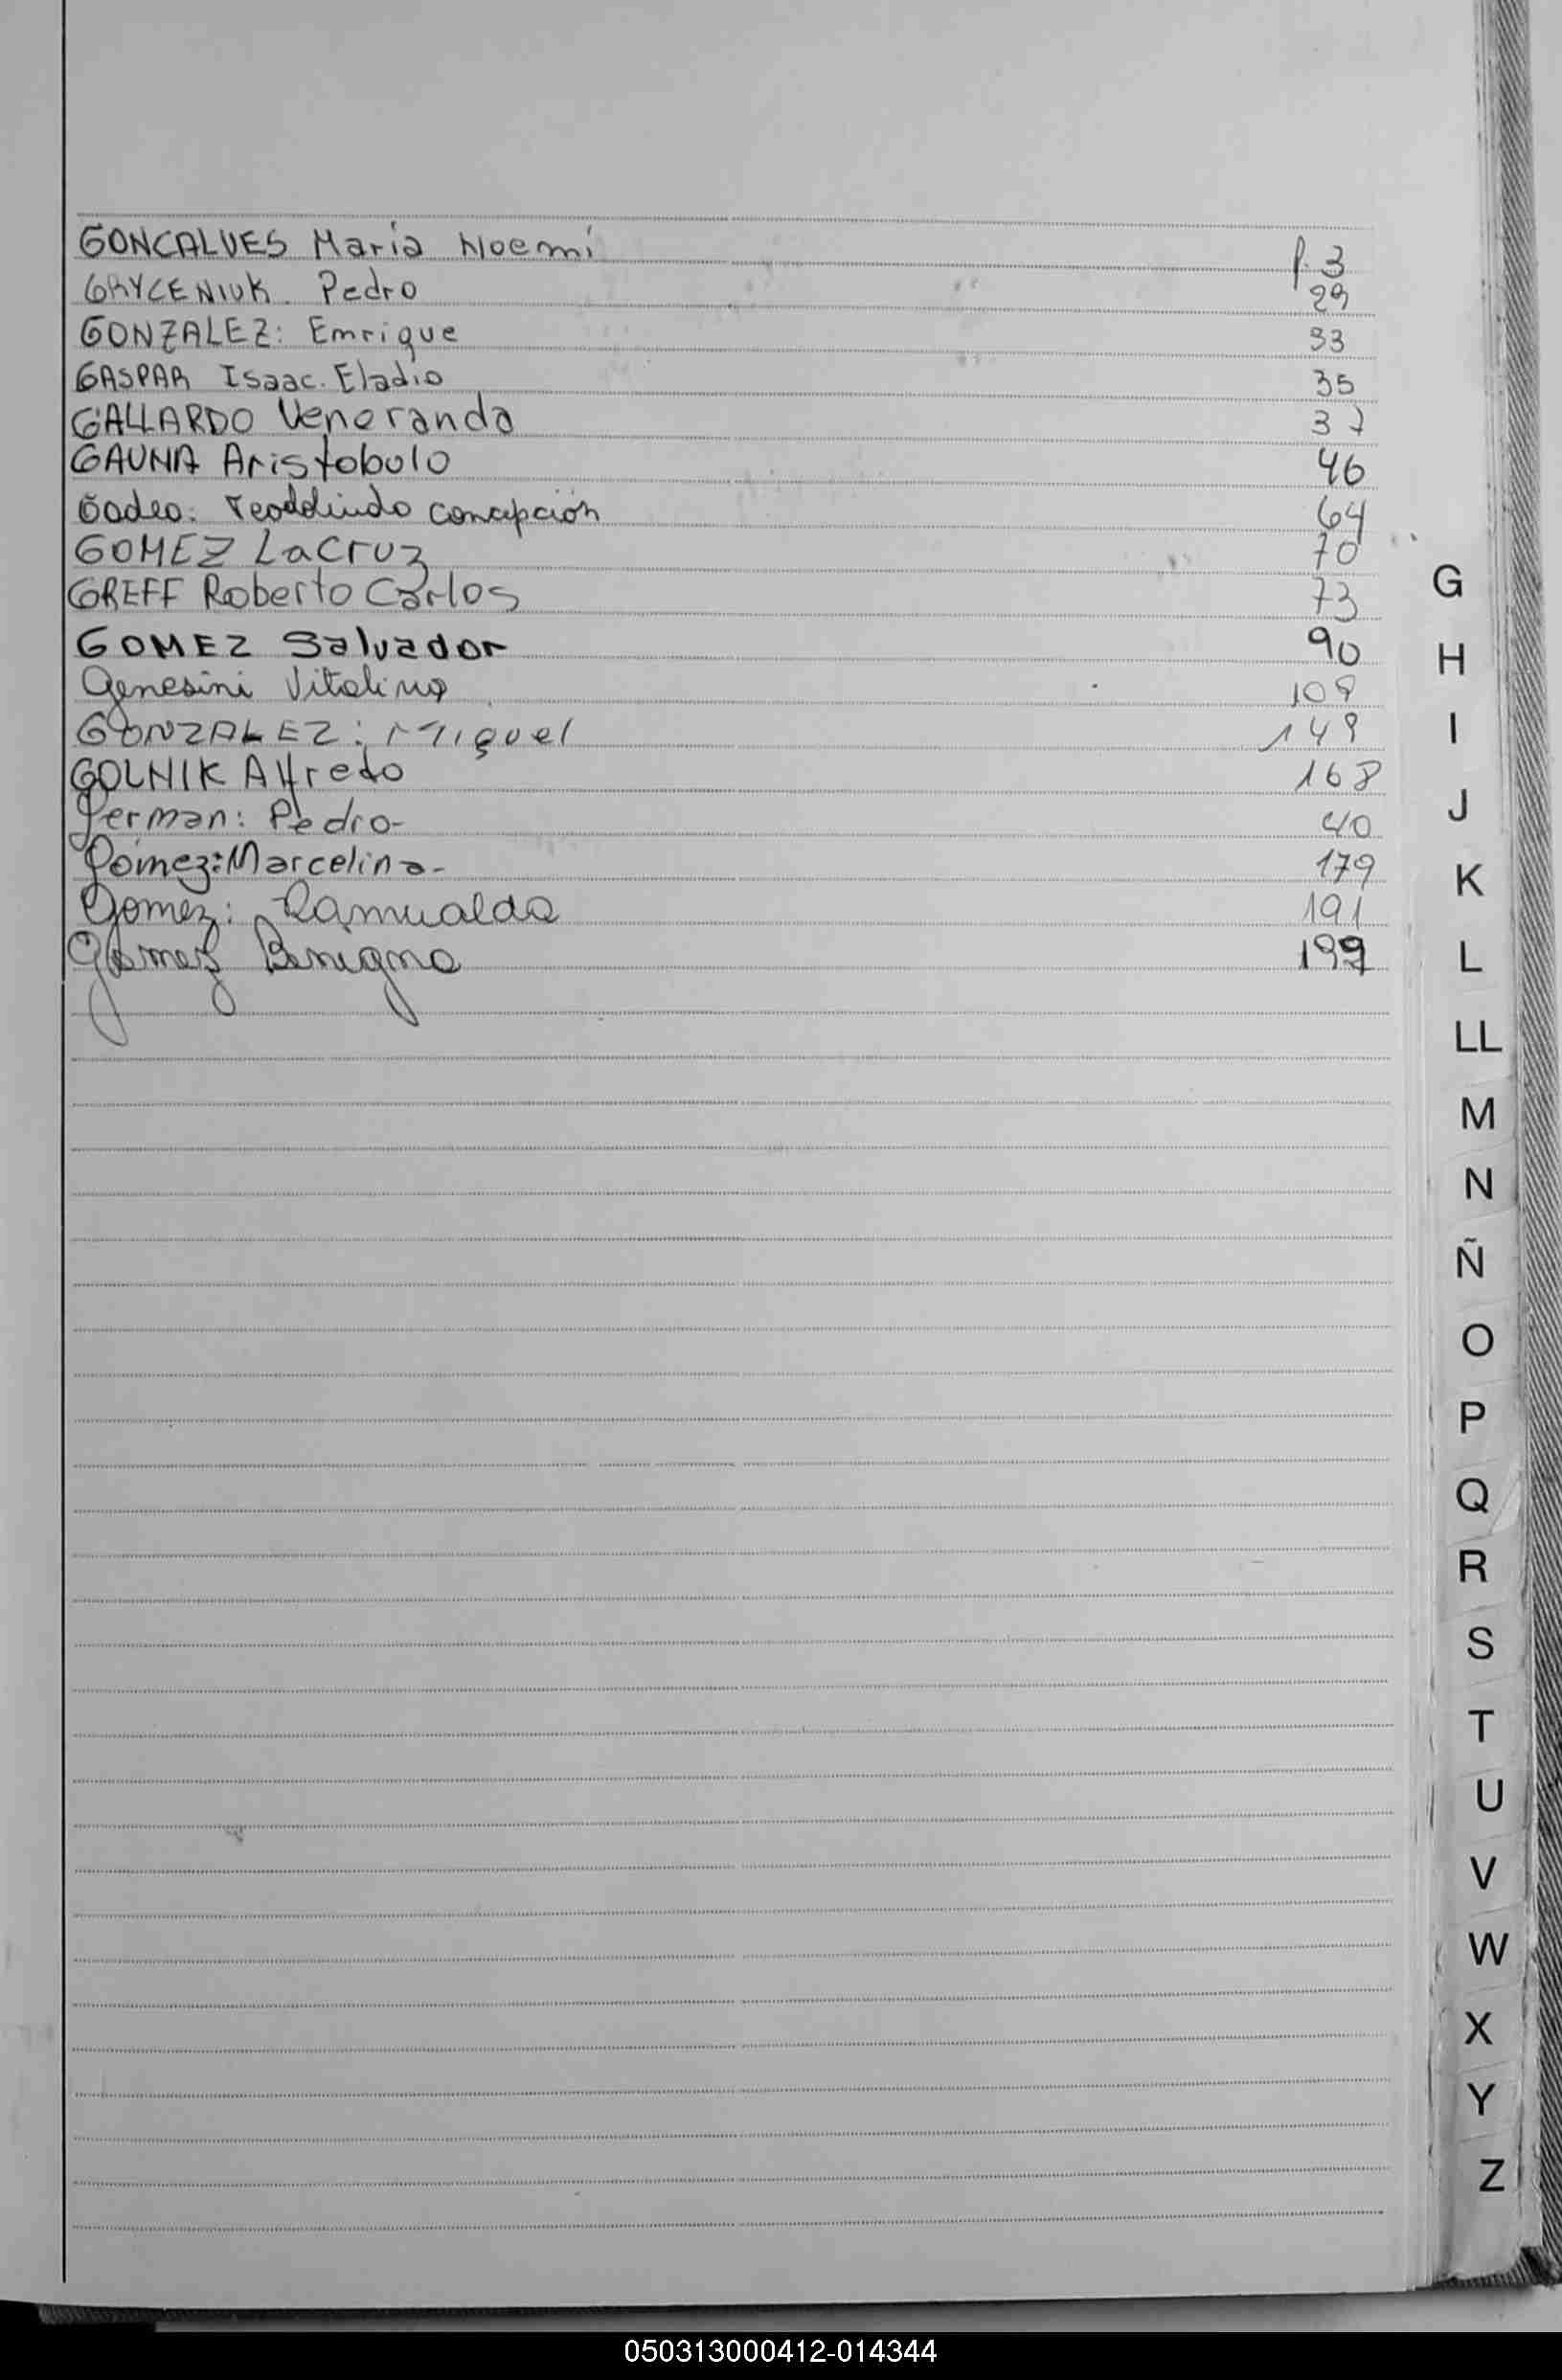 GONCALVES Maria Noemi f. 3
GRYCENIUK. Pedro 29
GONZALEZ: Enrique 33
GASPAR Isaac. Eladio 35
GALLARDO Veneranda 37
GAUNA Aristobulo 46
Godeo. Teodolindo concepción 64
GOMEZ LaCruz 70
GREFF Roberto Carlos 73
GOMEZ Salvador 90
Genesini Vitalino 109
GONZALEZ: Miguel 149
GOLNIK Alfredo 168
German: Pedro- 40
Gomez: Marcelina- 179
Gomez: Ramualda 191
Gomez Benigna 199
G
H
I
J
K
L
LL
M
N
Ñ
O
P
Q
R
S
T
U
V
W
X
Y
Z
050313000412-014344